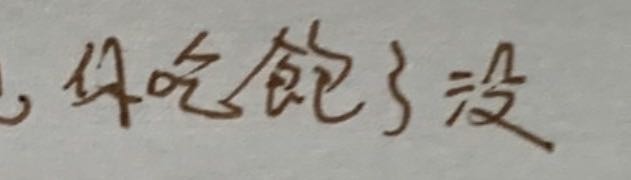 你吃飽了没